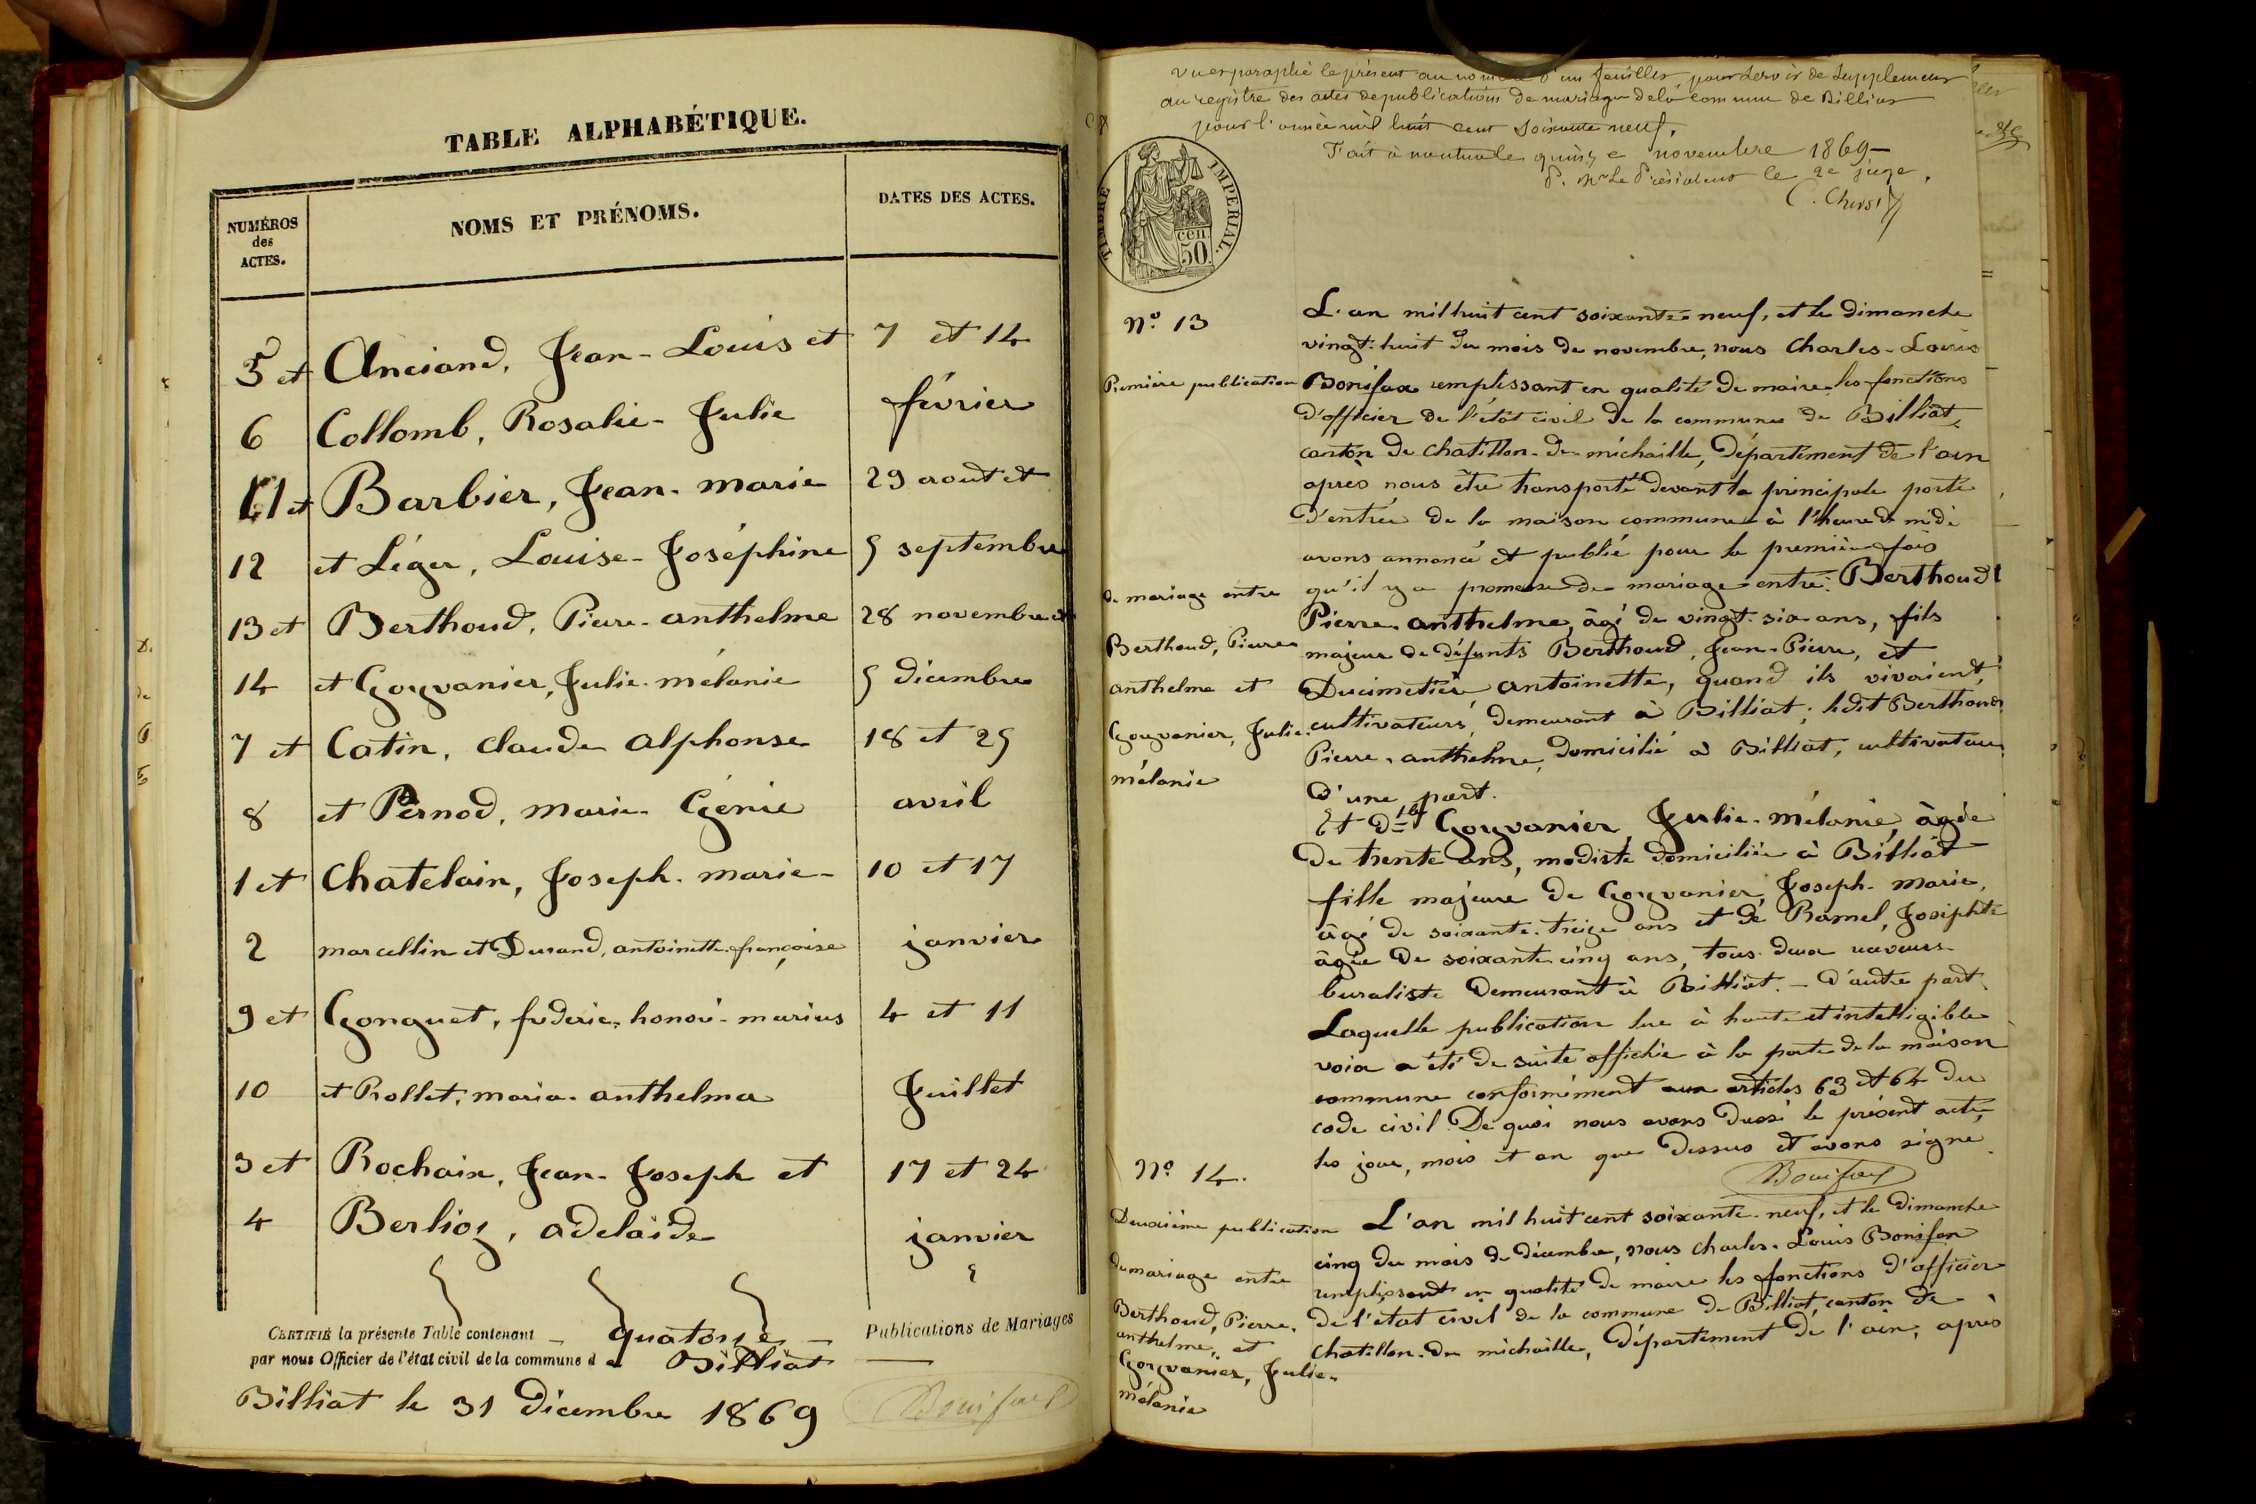 TABLE ALPHABÉTIQUE.
NUMÉROS
des
ACTES.
NOMS ET PRÉNOMS.
DATES DES ACTES.
5 et Anciand, Jean-Louis et 7 et 14
6 Collomb, Rosalie-Julie février
11 et Barbier, Jean-marie 29 aout et
12 et Léger, Louise-Joséphine 5 septembre
13 et Berthoud, Pierre-anthelme 28 novembre et
14 et Goyvanier, Julie-mélanie 5 décembre
7 et Catin, claude alphonse 18 et 25
8 et Pernod, marie-Génie avril
1 et Chatelain, Joseph-marie- 10 et 17
2 marcellin et Durand, antoinette-françoise janvier
9 et Gonguet, fréderic, honoré-marius 4 et 11
10 et Rollet, maria-anthelma Juillet
3 et Rochaix, Jean-Joseph et 17 et 24
4 Berlioz, adelaïde janvier
CERTIFIÉ la présente Table contenant - quatorze - Publications de Mariages
par nous Officier de l'état civil de la commune de Billiat
Billiat le 31 Décembre 1869
Bonifax
Vu et paraphé le présent au nombre d'un feuillet, pour servir de Supplement
au registre des actes de publications de mariage de la commune de Billiat
pour l'année mil huit cent soixante neuf.
Fait à nantua le quinze novembre 1869-
P. Mr Le Président le 2e juge,
TIMBRE IMPERIAL.
cen.
50
N° 13
Première publication
de mariage entre
Berthoud, Pierre
anthelme et
Goyvanier, Julie-
mélanie
L'an mil huit cent soixante-neuf, et le dimanche
vingt-huit du mois de novembre, nous Charles-Louis
Bonifax remplissant en qualité de maire les fonctions
d'officier de l'état civil de la commune de Billiat,
canton de chatillon-de-michaille, Département de l'ain
après nous être transporté devant la principale porte
d'entrée de la maison commune à l'heure de midi
avons annoncé et publié pour la première fois
qu'il y a promesse de mariage entre: Berthoud
Pierre-anthelme, âgé de vingt-six ans, fils
majeur de défunts Berthoud, Jean-Pierre, et
Ducimetière antoinette, quand ils vivaient,
cultivateurs, demeurant à Billiat; ledit Berthoud
Pierre-anthelme, domicilié à Billiat, cultivateur
d'une part.
Et Dlle Goyvanier, Julie-mélanie, âgée
de trente ans, modiste domiciliée à Billiat
fille majeure de Goyvanier, Joseph-Marie,
âgé de soixante-treize ans et de Ramel, Josephte
âgée de soixante-cinq ans, tous deux receveurs
buraliste demeurant à Billiat. - D'autre part.
Laquelle publication lue à haute et intelligible
voix a été de suite affichée à la porte de la maison
commune conformément aux articles 63 et 64 du
code civil. De quoi nous avons dressé le présent acte,
les jour, mois et an que dessus et avons signé.
Bonifax
N° 14.
Deuxième publication
de mariage entre
Berthoud, Pierre-
anthelme, et
Goyvanier, Julie-
mélanie
L'an mil huit cent soixante-neuf, et le Dimanche
cinq du mois de décembre, nous Charles-Louis Bonifax
remplissant en qualité de maire les fonctions d'officier
de l'état civil de la commune de Billiat, canton de
chatillon-de-michaille, Département de l'ain, après